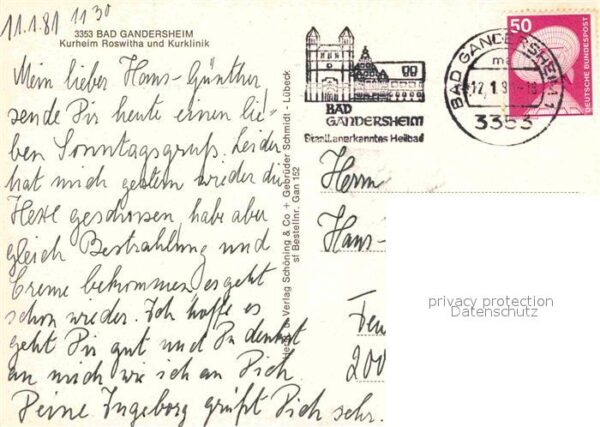 11.1.81 11 30
3353 BAD GANDERSHEIM
Kurheim Roswitha und Kurklinik
Mein lieber Hans-Günther,
sende Dir heute einen lie-
ben Sonntagsgruß. Leider
hat mich gestern wieder die
Hexe geschossen, habe aber
gleich Bestrahlung und
Creme bekommen, es geht
schon wieder. Ich hoffe es
geht Dir gut und Du denkst
an mich wie ich an Dich.
Deine Ingeborg grüßt Dich sehr.
Verlag Schöning & Co + Gebrüder Schmidt - Lübeck
Bestellnr. Gan 152
BAD
GANDERSHEIM
Staatl. anerkanntes Heilbad
BAD GANDERSHEIM 1
3353
50
DEUTSCHE BUNDESPOST
Herrn
Hans-
200
privacy protection
Datenschutz